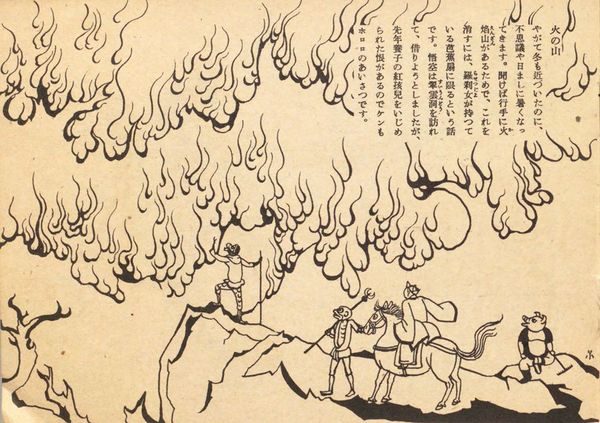 火の山
やがて冬も近づいたのに、
不思議や日ましに暑くなつ
てきます。聞けば行手に火
焰山があるためで、これを
消すには、羅刹女が持つて
いる芭蕉扇に限るという話
です。悟空は翠雲洞を訪れ
て、借りようとしましたが、
先年養子の紅孩兒をいじめ
られた恨があるのでケンも
ホロロのあいさつです。